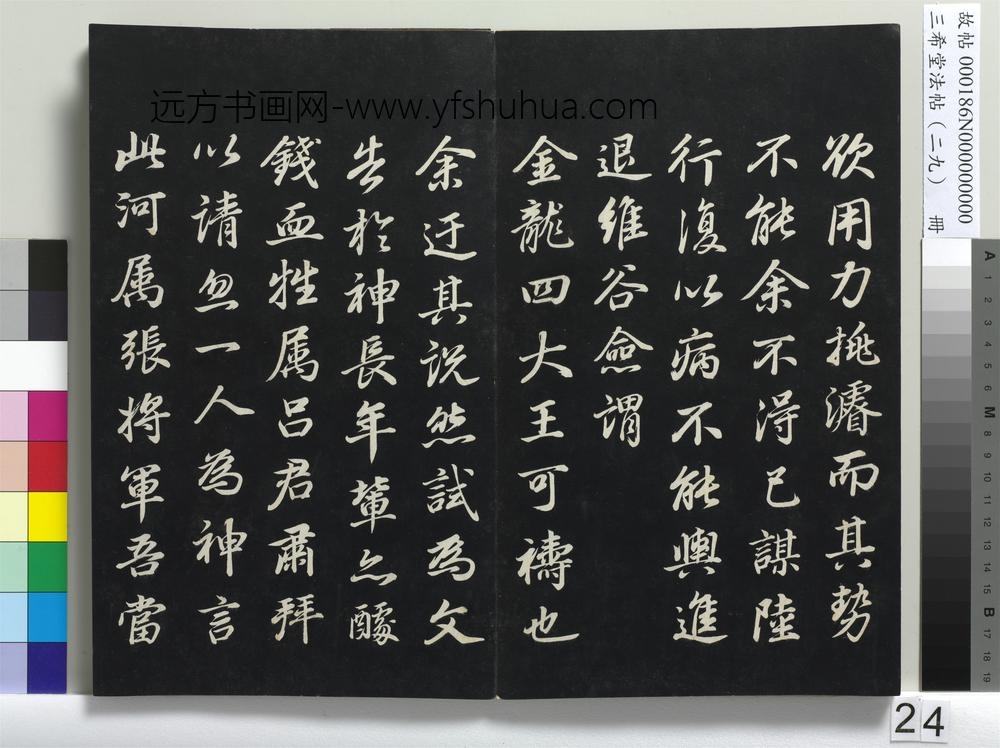 欲用力挑濬而其势
不能余不得已謀陸
行復以病不能輿進
退維谷僉謂
金龍四大王可禱也
余迂其说然試為文
告於神長年輩亦醵
錢血牲属吕君肅拜
以請忽一人為神言
此河属張將軍吾當
远方书画网-www.yfshuhua.com
故帖 000186N000000000
三希堂法帖（二九） 冊
A 1 2 3 4 5 6 M 8 9 10 11 12 13 14 15 B 17 18 19
24